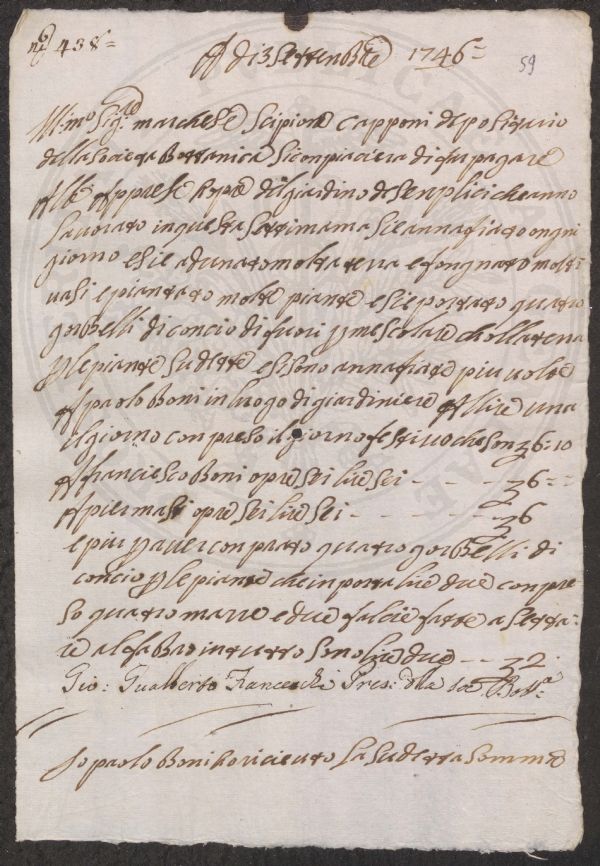 nº 438=
A di 3 Settenbre 1746=
59
Ill:mo Sig:re marchese Scipione Capponi depositario
della Societa Bottanica Si conpiacera di fu pagare
Alle Appresè hopre del giardino de senplici che anno
lavorato in questa settimama Si e annafiato ongni
giorno e si e adunato molta terra e fongnato molti
vasi e piantato molte piante e si e portato quatro
gorbelli di concio di fuori p mescolare cholla terra
p le piante sudette e si sono annafiate piu volte
A paolo Boni in luogo di giardiniere A lire una
il giorno conpreso il giorno festivo che sono 6:10
A franciesco Boni opre sei lire sei - - - - 6=
A pier masi opre sei lire sei - - - - 6
e piu p aver conprato quatro gorbelli di
concio p le piante che inporta lire due conpre
so quatro marre e due falcie fatte asetta=
re al fabro in tutto sono lire due - - 2
Gio: Gualberto Franceschi Pres: d:la Soc: Bot:a
Io paolo Boni ho ricieuto la sudetta somma